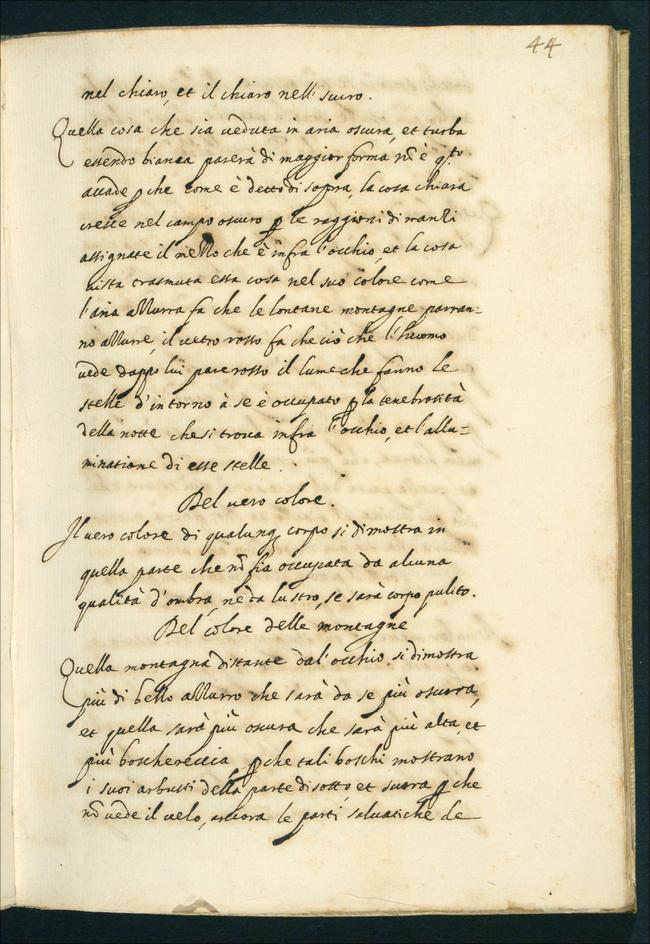 44
nel chiaro, et il chiaro nell' scuro.
Quella cosa che sia veduta in aria oscura, et turba
essendo bianca parerà di maggior forma nō è q.to
accade ꝑche come è detto di sopra, la cosa chiara
cresce nel campo oscuro ꝑ le raggioni dinanzi
assignate il mezzo che è infra l'occhio, et la cosa
vista trasmuta essa cosa nel suo colore come
l'aria azzurra fa che le lontane montagne parran=
no azzurre, il vetro rosso fa che ciò che l'huomo
vede dappo lui pare rosso il lume che fanno le
stelle d'intorno à se è occupato ꝑ la tenebrosità
della notte che si trova infra l'occhio, et l'allu=
minatione di esse stelle.
Del vero colore.
Il vero colore di qualunqꝫ corpo si dimostra in
quella parte che nō fia occupata da alcuna
qualità d'ombra, nè da lustro, se sarà corpo pulito.
Del colore delle montagne
Quella montagna distante dal' occhio si dimostra
più di bello azzurro che sarà da se più oscura,
et quella sarà più oscura che sarà più alta, et
più boschereccia ꝑche tali boschi mostrano
i suoi arbusti della parte di sotto et ꝑche
nō vede il celo, ancora le parti salvatiche de